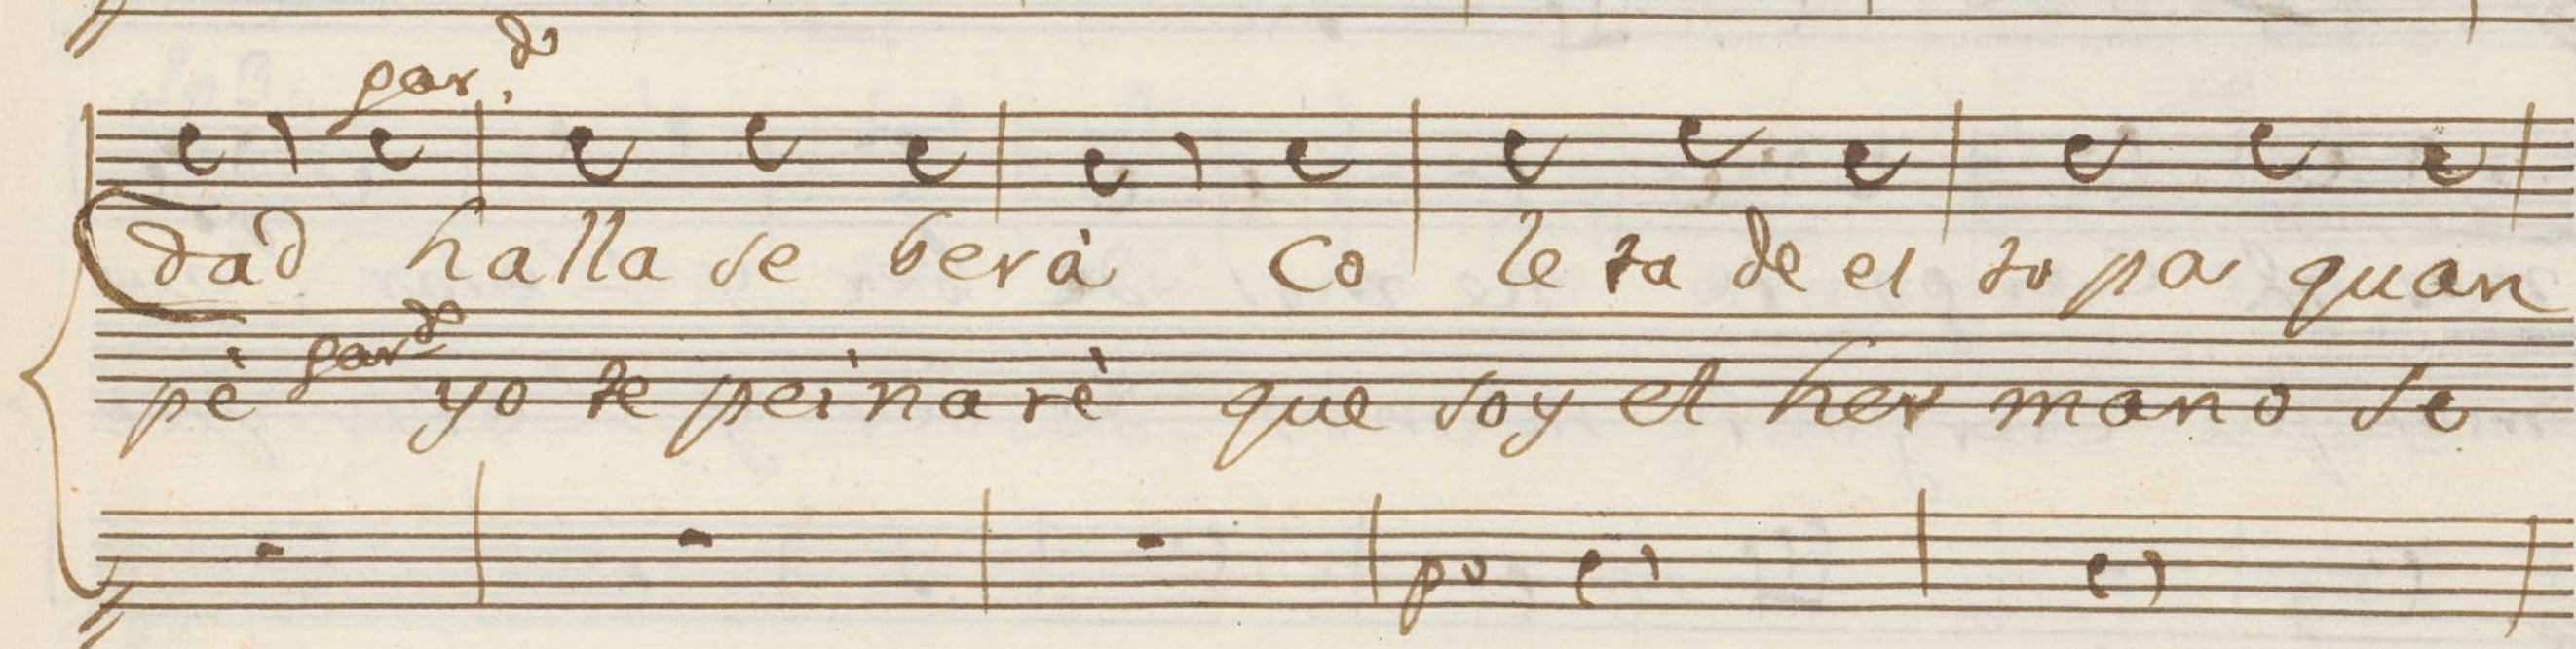 par.do
dad halla se berà Co le ta de el to pa quan
pè pardo yo te peinarè que soy el her mano se
po